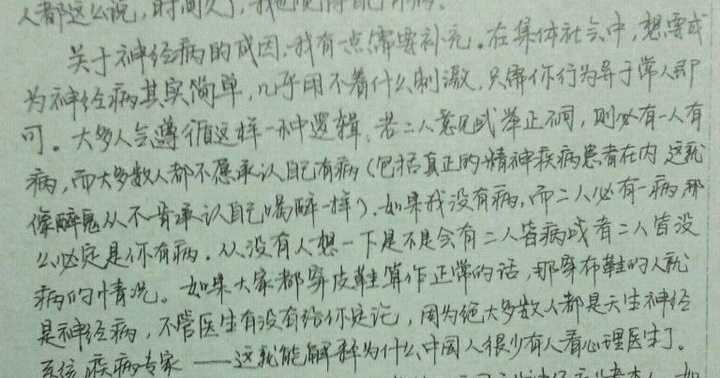 人都这么说,时间久了,我也觉得自己有病。
关于神经病的成因,我有一点需要补充。在集体社会中,想要成
为神经病其实简单,几乎用不着什么刺激,只需你行为异于常人即
可。大多人会遵循这样一种逻辑,若二人意见或举止不同,则必有一人有
病,而大多数人都不愿承认自己有病(包括真正的精神疾病患者在内,这就
像醉鬼从不肯承认自己喝醉一样)。如果我没有病,而二人必有一病,那
么必定是你有病。从没有人想一下是不是会有二人皆病或者二人皆没
病的情况。如果大家都穿皮鞋算作正常的话,那穿布鞋的人就
是神经病,不管医生有没有给你定论,因为绝大多数人都是天生神经
系统疾病专家——这就能解释为什么中国人很少有人看心理医生了。